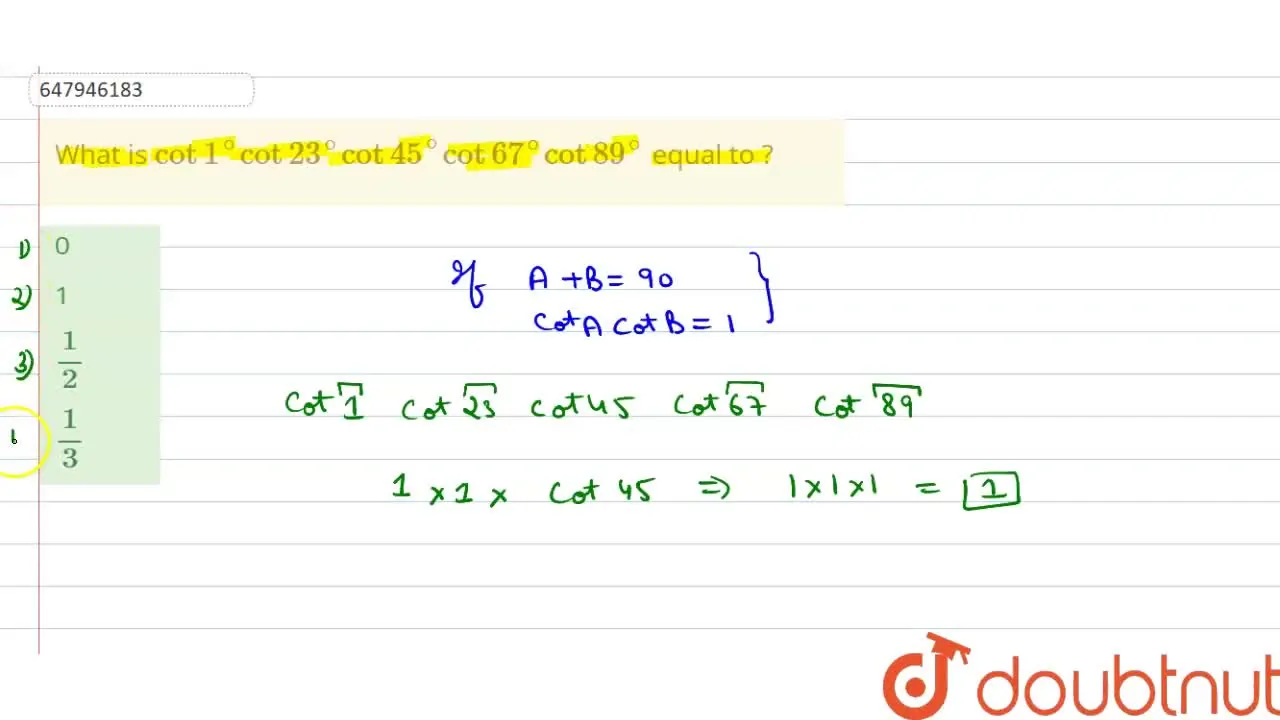 647946183
What is cot 1° cot 23° cot 45° cot 67° cot 89° equal to ?
1) 0
2) 1
3) 1/2
1/3
If A + B = 90
cot A cot B = 1
cot 1 cot 23 cot 45 cot 67 cot 89
1 × 1 × cot 45 ⇒ 1 × 1 × 1 = 1
doubtnut